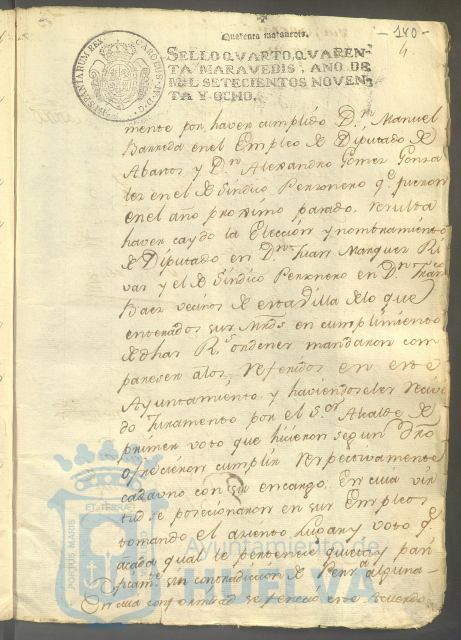 Quarenta maravedis.
- 140 -
4.
SELLO QVARTO, QVAREN-
TA MARAVEDIS, AÑO DE
MIL SETECIENTOS NOVEN-
TA Y OCHO.
HISPANIARUM REX CAROLUS IV D. G.
mente por haver cumplido Dn. Manuel
Barreda en el Empleo de Diputado de
Abastos y Dn. Alexandro Gomez Gonza
les en el de Sindico Personero qe. fueron
en el año proximo pasado, resulta
haver caydo la Elección y nombramiento
de Diputado en Dn. Juan Marquez Ri
vas y el de Sindico Personero en Dn.
Baez vecinos de esta Villa de lo que
enterados sus Mrds. en cumplimiento
de dhas Rs. ordenes mandaron com
parecer a los referidos en este
Ayuntamiento, y haviendoseles recivi
do Juramento por el Sor. Alcalde de
primer voto que hicieron segun dro
ofrecieron cumplir respectivamente
cada uno con su encargo. En cuia vir
tud se posecionaron en sus Empleos
tomando el asiento Lugar y voto qe.
a cada qual le pertenece quieta y pasi
ficamte. sin contradiccion de Persa. alguna
En cuia conformidad se fenecio este Acuerdo
PORTUS MARIS
ET TERRÆ
Ayuntamiento de
HUELVA